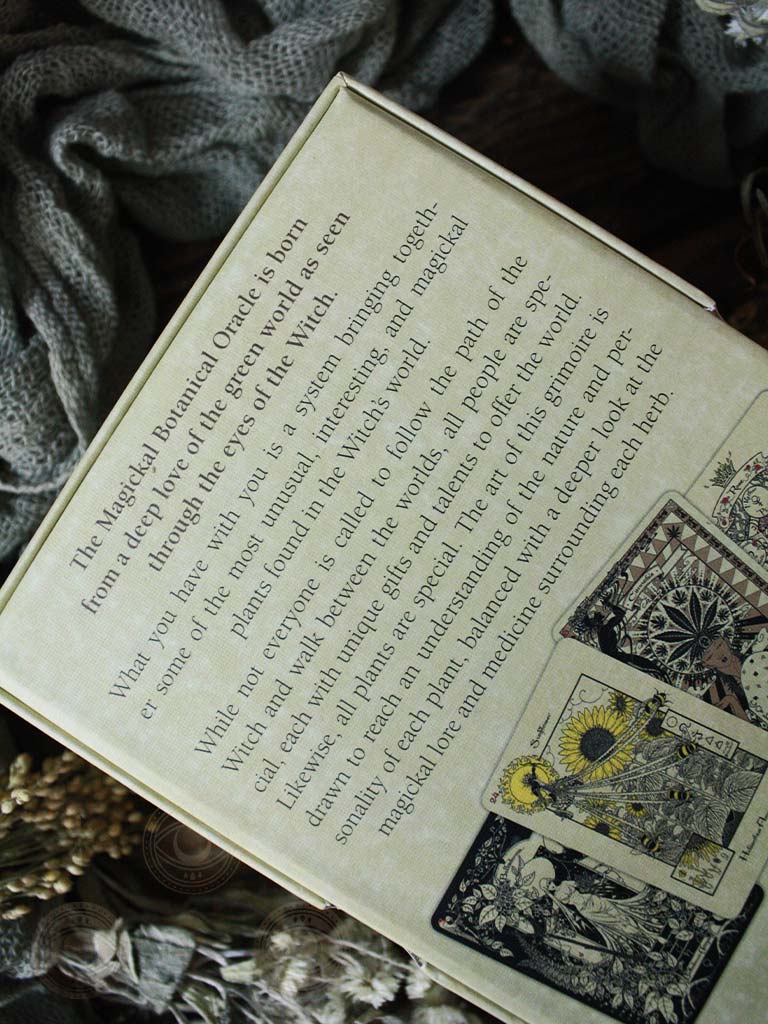 The Magickal Botanical Oracle is born
from a deep love of the green world as seen
through the eyes of the Witch.
What you have with you is a system bringing togeth-
er some of the most unusual, interesting, and magickal
plants found in the Witch's world.
While not everyone is called to follow the path of the
Witch and walk between the worlds, all people are spe-
cial, each with unique gifts and talents to offer the world.
Likewise, all plants are special. The art of this grimoire is
drawn to reach an understanding of the nature and per-
sonality of each plant, balanced with a deeper look at the
magickal lore and medicine surrounding each herb.
Sunflower